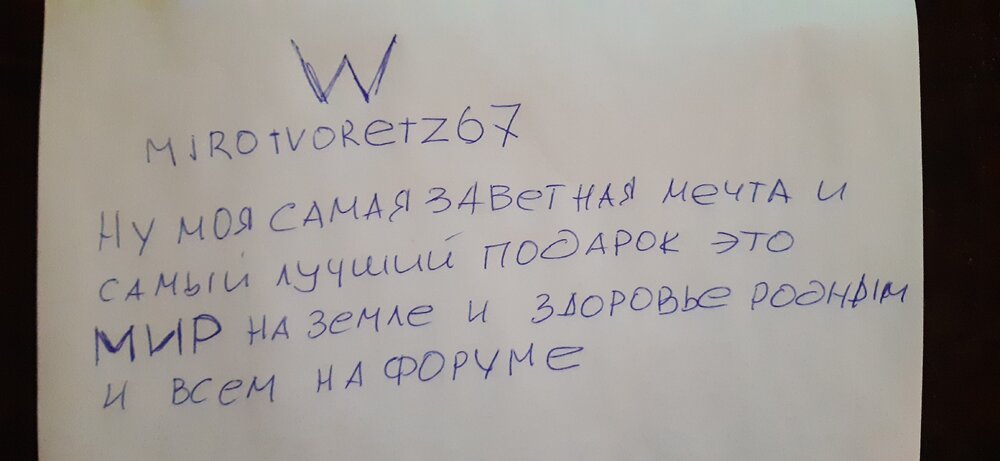 W
MiROtVORetZ67
Ну моя самая заветная мечта и
самый лучший подарок это
МИР на земле и здоровье родным
и всем на форуме